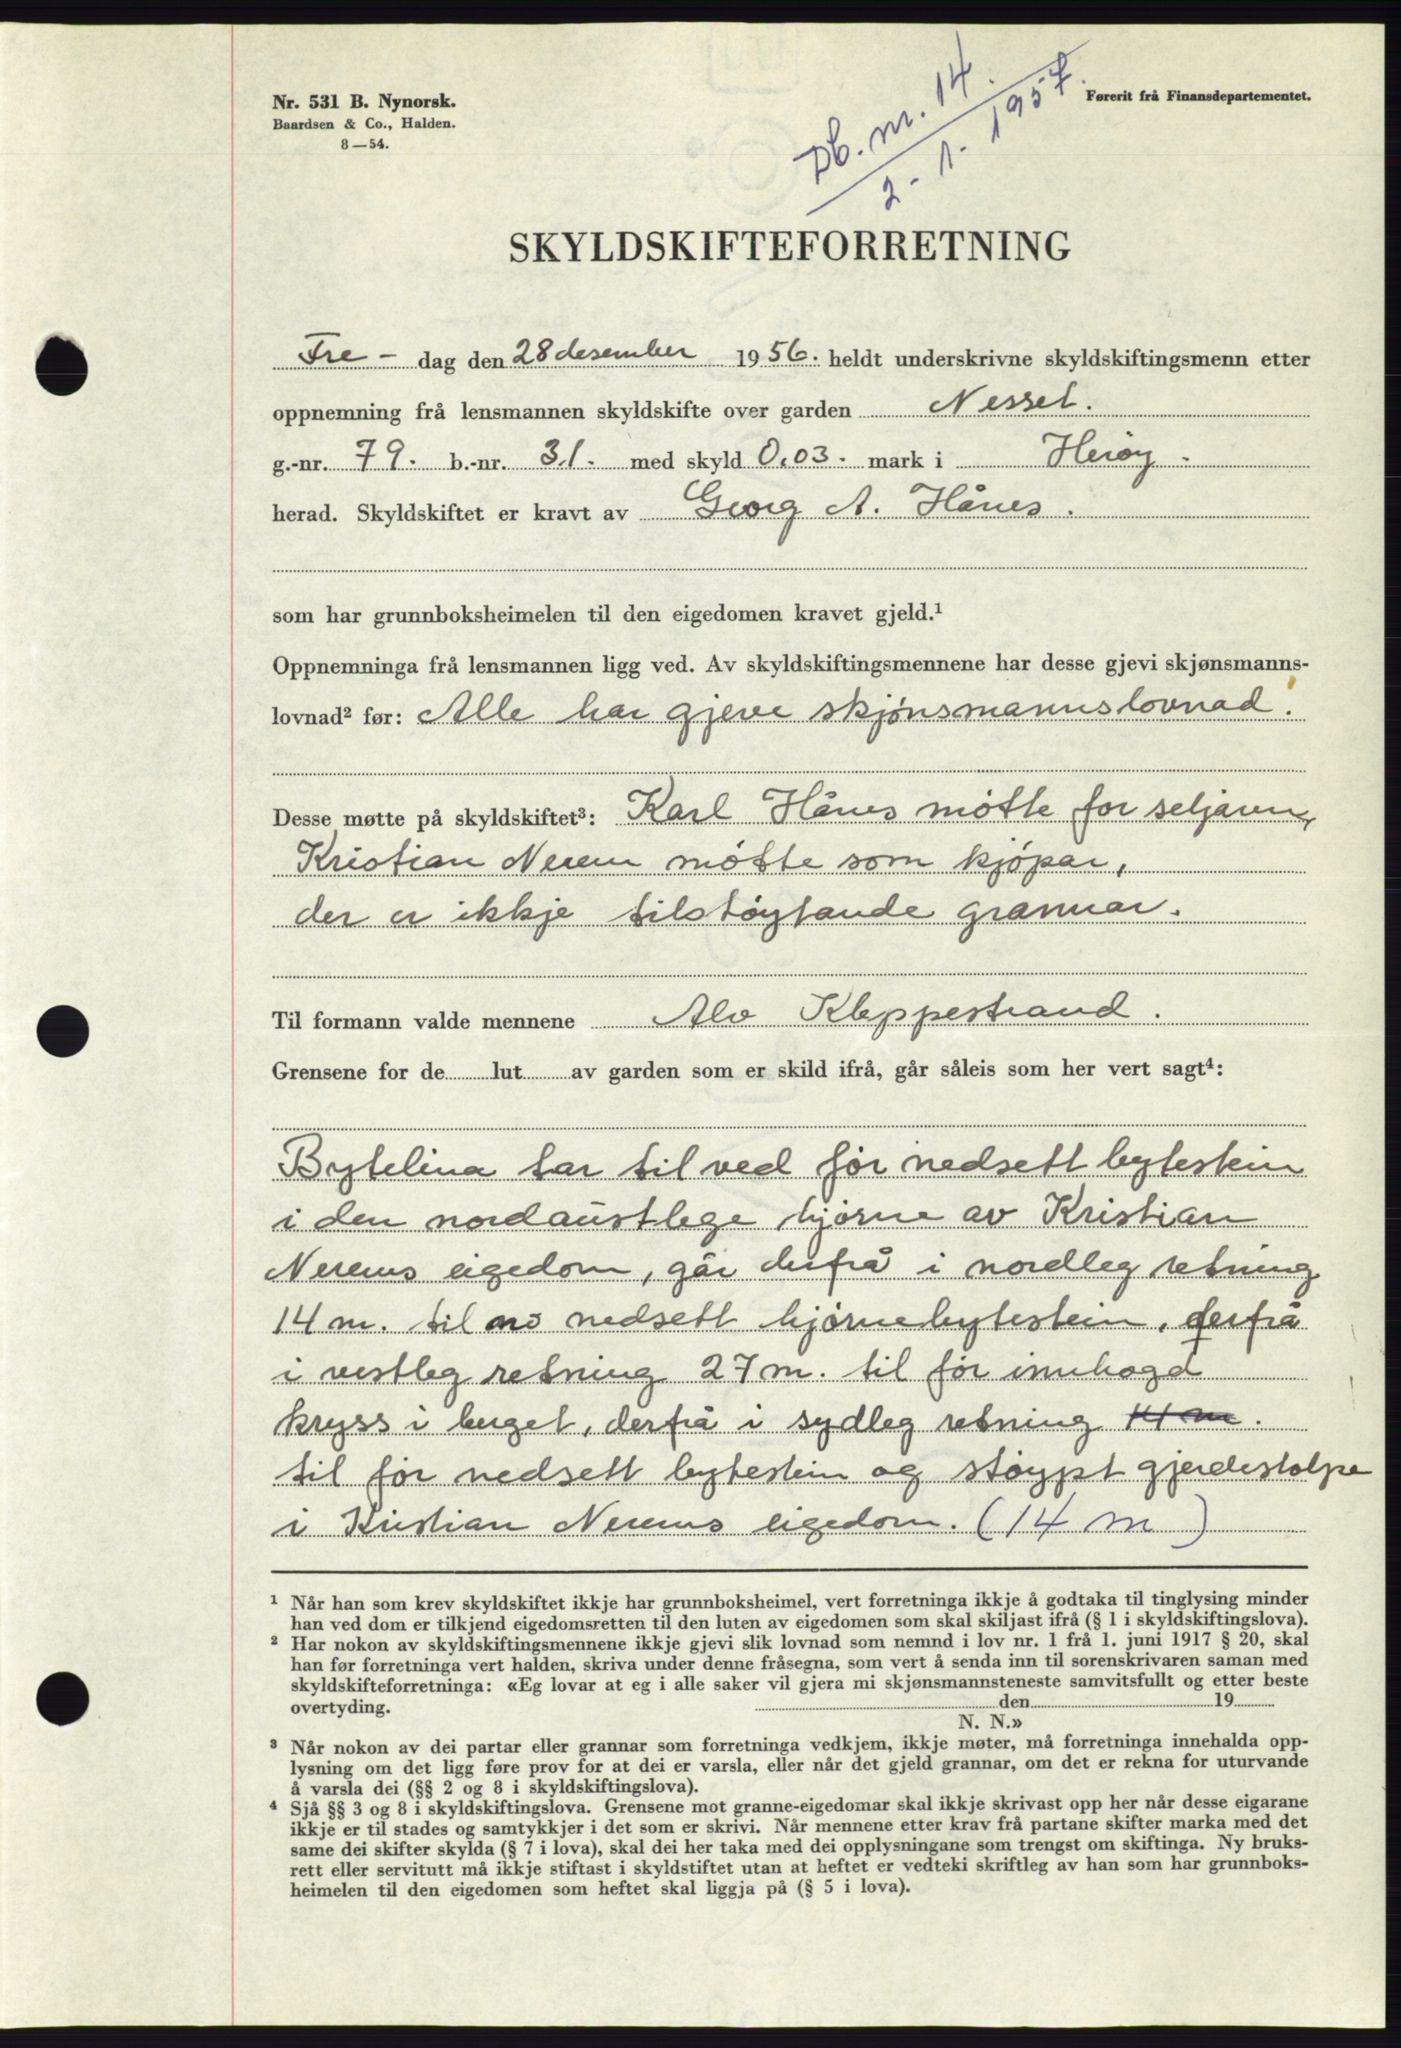 Nr. 531 B. Nynorsk.
Baardsen & Co., Halden.
8—54.
Db. nr. 14.
2-1-1957.
Førerit frå Finansdepartementet.
SKYLDSKIFTEFORRETNING
Fre- dag den 28 desember 1956. heldt underskrivne skyldskiftingsmenn etter
oppnemning frå lensmannen skyldskifte over garden Nesset.
g.-nr. 79. b.-nr. 31. med skyld 0,03. mark i Herøy.
herad. Skyldskiftet er kravt av Georg A. Hånes.
som har grunnboksheimelen til den eigedomen kravet gjeld.¹
Oppnemninga frå lensmannen ligg ved. Av skyldskiftingsmennene har desse gjevi skjønsmanns-
lovnad² før: Alle har gjeve skjønsmannslovnad.
Desse møtte på skyldskiftet³: Karl Hånes møtte for seljaren,
Kristian Nerem møtte som kjøpar,
der er ikkje tilstøytande grannar.
Til formann valde mennene Alv Kleppestrand.
Grensene for de lut av garden som er skild ifrå, går såleis som her vert sagt⁴:
Bytelina tar til ved før nedsett bytestein
i den nordaustlege hjørne av Kristian
Nerems eigedom, går derfrå i nordleg retning
14 m. til no nedsett hjørnebytestein, derfrå
i vestleg retning 27 m. til før innhogd
kryss i berget, derfrå i sydleg retning 14 m.
til før nedsett bytestein og støypt gjerdestolpe
i Kristian Nerems eigedom. (14 m)
¹ Når han som krev skyldskiftet ikkje har grunnboksheimel, vert forretninga ikkje å godtaka til tinglysing minder
han ved dom er tilkjend eigedomsretten til den luten av eigedomen som skal skiljast ifrå (§ 1 i skyldskiftingslova).
² Har nokon av skyldskiftingsmennene ikkje gjevi slik lovnad som nemnd i lov nr. 1 frå 1. juni 1917 § 20, skal
han før forretninga vert halden, skriva under denne fråsegna, som vert å senda inn til sorenskrivaren saman med
skyldskifteforretninga: «Eg lovar at eg i alle saker vil gjera mi skjønsmannsteneste samvitsfullt og etter beste
overtyding. den 19
N. N.»
³ Når nokon av dei partar eller grannar som forretninga vedkjem, ikkje møter, må forretninga innehalda opp-
lysning om det ligg føre prov for at dei er varsla, eller når det gjeld grannar, om det er rekna for uturvande
å varsla dei (§§ 2 og 8 i skyldskiftingslova).
⁴ Sjå §§ 3 og 8 i skyldskiftingslova. Grensene mot granne-eigedomar skal ikkje skrivast opp her når desse eigarane
ikkje er til stades og samtykkjer i det som er skrivi. Når mennene etter krav frå partane skifter marka med det
same dei skifter skylda (§ 7 i lova), skal dei her taka med dei opplysningane som trengst om skiftinga. Ny bruks-
rett eller servitutt må ikkje stiftast i skyldstiftet utan at heftet er vedteki skriftleg av han som har grunnboks-
heimelen til den eigedomen som heftet skal liggja på (§ 5 i lova).